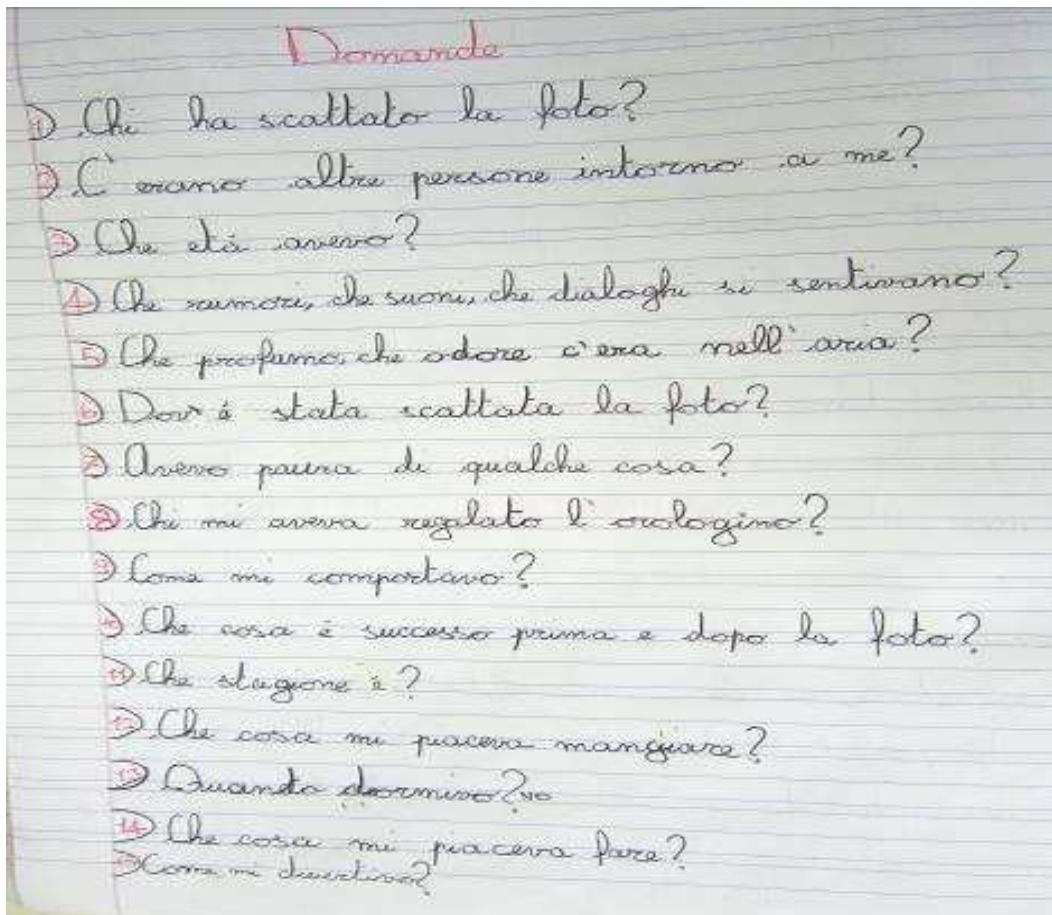 Domande
1) Chi ha scattato la foto?
2) C'erano altre persone intorno a me?
3) Che età avevo?
4) Che rumori, che suoni, che dialoghi si sentivano?
5) Che profumo, che odore c'era nell'aria?
6) Dov'è stata scattata la foto?
7) Avevo paura di qualche cosa?
8) Chi mi aveva regalato l'orologino?
9) Come mi comportavo?
10) Che cosa è successo prima e dopo la foto?
11) Che stagione è?
12) Che cosa mi piaceva mangiare?
13) Quando dormivo?vo
14) Che cosa mi piaceva fare?
15) Come mi divertivo?